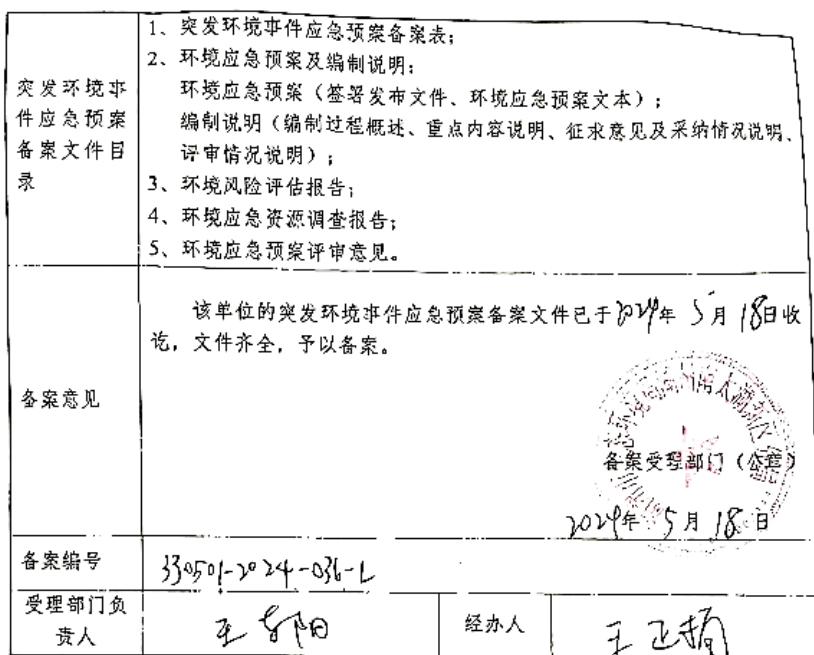 突发环境事件应急预案备案文件目录
1、突发环境事件应急预案备案表；
2、环境应急预案及编制说明；
环境应急预案（签署发布文件、环境应急预案文本）；
编制说明（编制过程概述、重点内容说明、征求意见及采纳情况说明、
评审情况说明）；
3、环境风险评估报告；
4、环境应急资源调查报告；
5、环境应急预案评审意见。
备案意见
该单位的突发环境事件应急预案备案文件已于2024年5月18日收
讫，文件齐全，予以备案。
备案受理部门（公章）
2024年5月18日
备案编号
330501-2024-036-L
受理部门负
责人
经办人